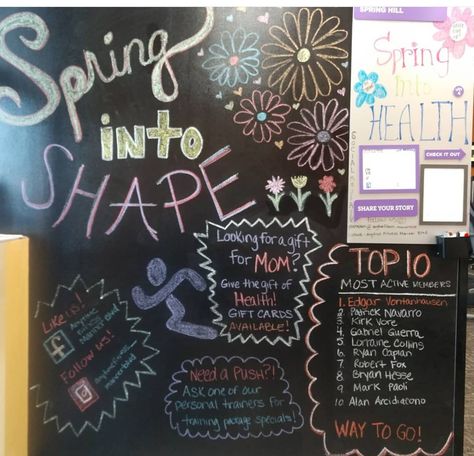 Spring
into
SHAPE
SPRING HILL
Spring
Into
HEALTH
CHECK IT OUT
SHARE YOUR STORY
Looking for a gift
for MOM?
Give the gift of
Health!
GIFT CARDS
AVAILABLE!
Like us!
Anytime
Fitness
Mariner Blvd
Follow us!
Need a Push??
Ask one of our
personal trainers for
training package specials!
TOP 10
MOST ACTIVE MEMBERS
1. Edgar Vontanhausen
2 Patrick Navarro
3 Kirk Vore
4 Gabriel Guerra
5 Lorraine Collins
6 Ryan Caplan
7 Robert Fox
8 Bryan Hesse
9 Mark Paoli
10 Alan Arcidiacono
WAY TO GO!